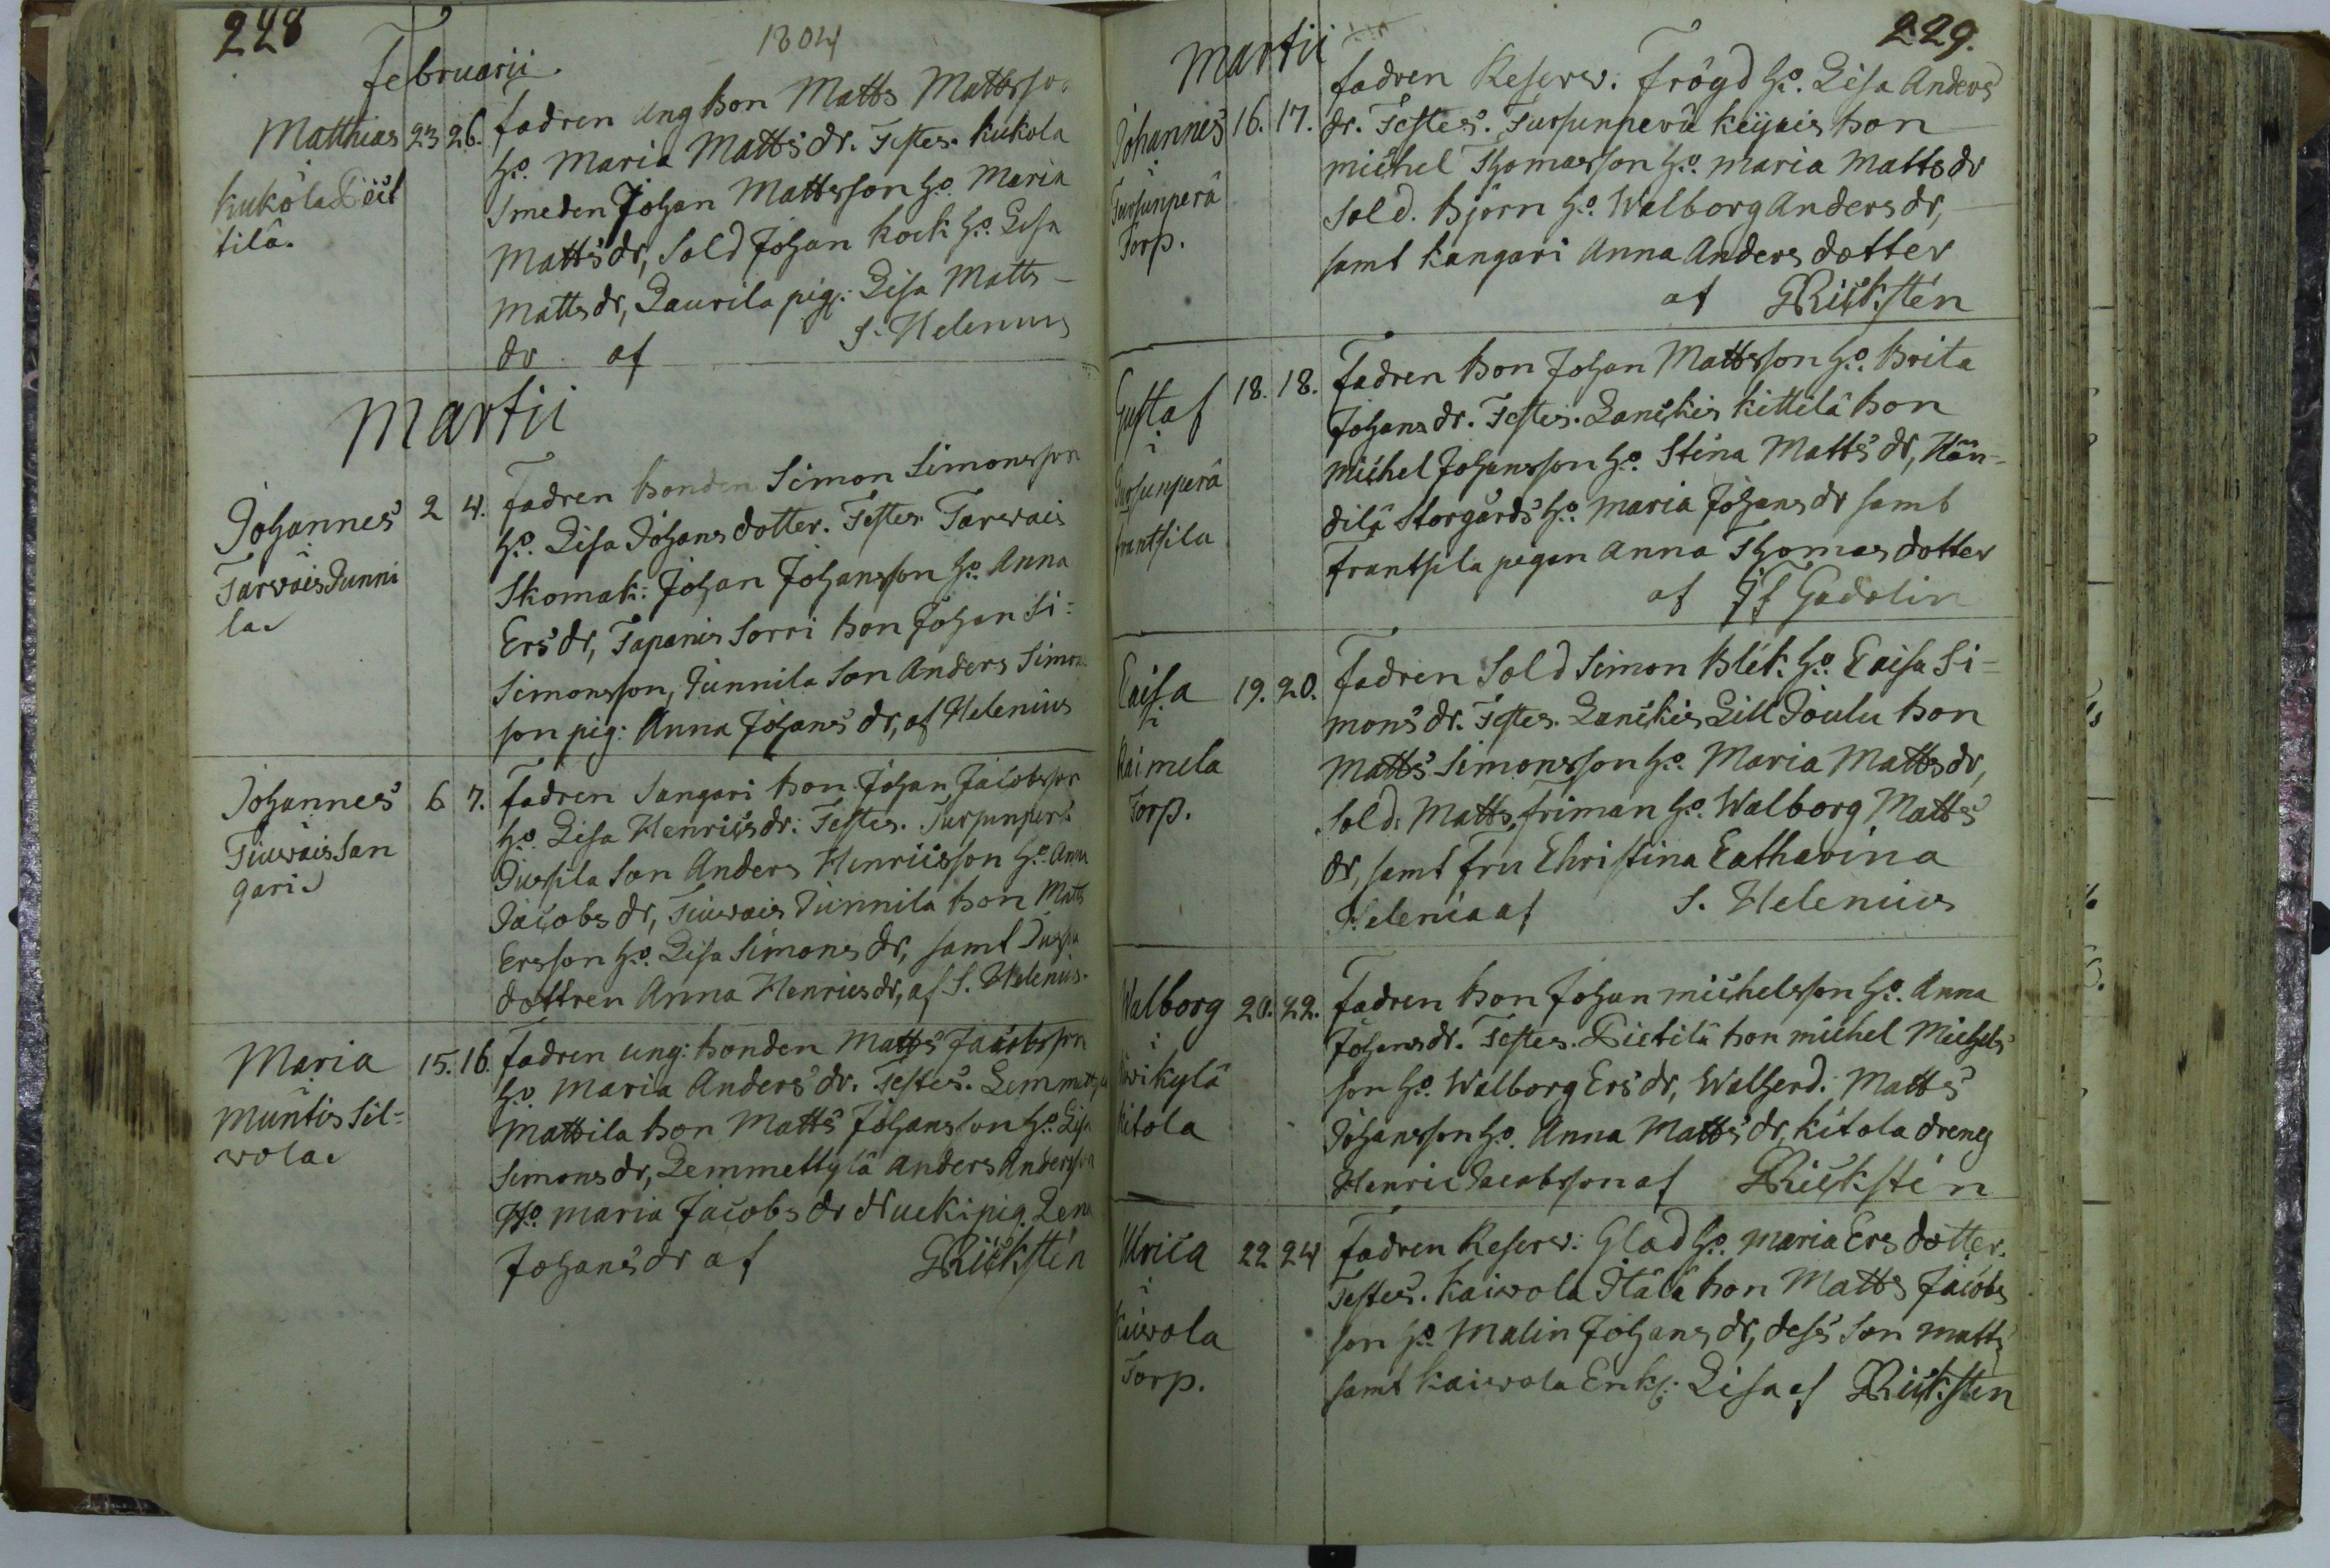 228
1804
Februarii
Matthias 23 26. fadren ung bon Matts Mattsso
h:o Maria Matts dr. Testes. Kukola
Kukola Piet
Smeden Johan Mattsson h:o Maria
tilä.
Matts dr, Sold Johan Kock h:o Lisa
Matts dr, Laurila pig: Lisa Matts
dr af S. Helenius
Martii
Johannes 2 4. fadren bonden Simon Simonsson
h:o Lisa Johans dotter. Testes. Tarvais
i
Tarvais Junni
la
Skomak: Johan Johansson h:o Anna
Ers dr, Tapanis Sorri bon Johan Si=
Simonsson, Junnila Son Anders Simon
son pig: Anna Johans dr, af Helenius
Johannes 6 7. fadren Sangari bon Johan Jacobsson
h:o Lisa Henrics dr: Testes. Tursunperä
Tiuvais San
gari
Jussila Son Anders Henricsson h:o Anna
Jacobs dr, Tiuvais Junnila bon Matts
Ersson h:o Lisa Simons dr, samt Jussila
dottren Anna Henrics dr, af S. Helenius.
Maria 15. 16. fadren ung: bonden Matts Jacobsson
h:o Maria Anders dr. Testes. Lemmetty
i
Muntis Sil=
vola
Mattila bon Matts Johansson h:o Lisa
Simons dr, Lemmettylä Anders Andersson
H:o Maria Jacobs dr Nucki pig. Lena
Johans dr af GRickstén
229.
Martii
fadren Reserv: Frögd h:o Lisa Anders
Johannes 16. 17. dr. Testes. Tursunperä Keijais bon
i
Tursunperä
Torp.
Michel Thomasson h:o Maria Matts dr
Sold. Björn h:o Walborg Anders dr,
samt Kangari Anna Anders dotter
af GRickstén
Gustaf 18. 18. fadren bon Johan Mattsson h:o Brita
i
Tursunperä
Frantsila
Johans dr. Testes. Lanckis Kittilä bon
Michel Johansson h:o Stina Matts dr, Hän-
dilä Storgårds h:o Maria Johans dr samt
Frantsila pigan Anna Thomas dotter
af JF Gadolin
Caisa 19. 20. fadren Sold Simon Blek: h:o Caisa Si=
i
Raimela
Torp.
mons dr. Testes. Lanckis Lill Joulu bon
Matts Simonsson h:o Maria Matts dr,
Sold: Matts Friman h:o Walborg Matts
dr, samt Fru Christina Catharina
Helenia af S. Helenius
Walborg 20. 22. fadren bon Johan Michelsson h:o Anna
i
Kitola
Johans dr. Testes. Pietilä bon Michel Michels
son h:o Walborg Ers dr, Matts
Johansson h:o Anna Matts dr, Kitola dreng
Henric Jacobsson af GRickstén
Ulrica 22 24 fadren Reserv: Glad h:o Maria Ers dotter.
i
Kaivola
Torp.
Testes. Kaivola Itälä bon Matts Jacobs
son h:o Malin Johans dr, dess Son Matts
samt Kaivola Enk: Lisa af GRicksten